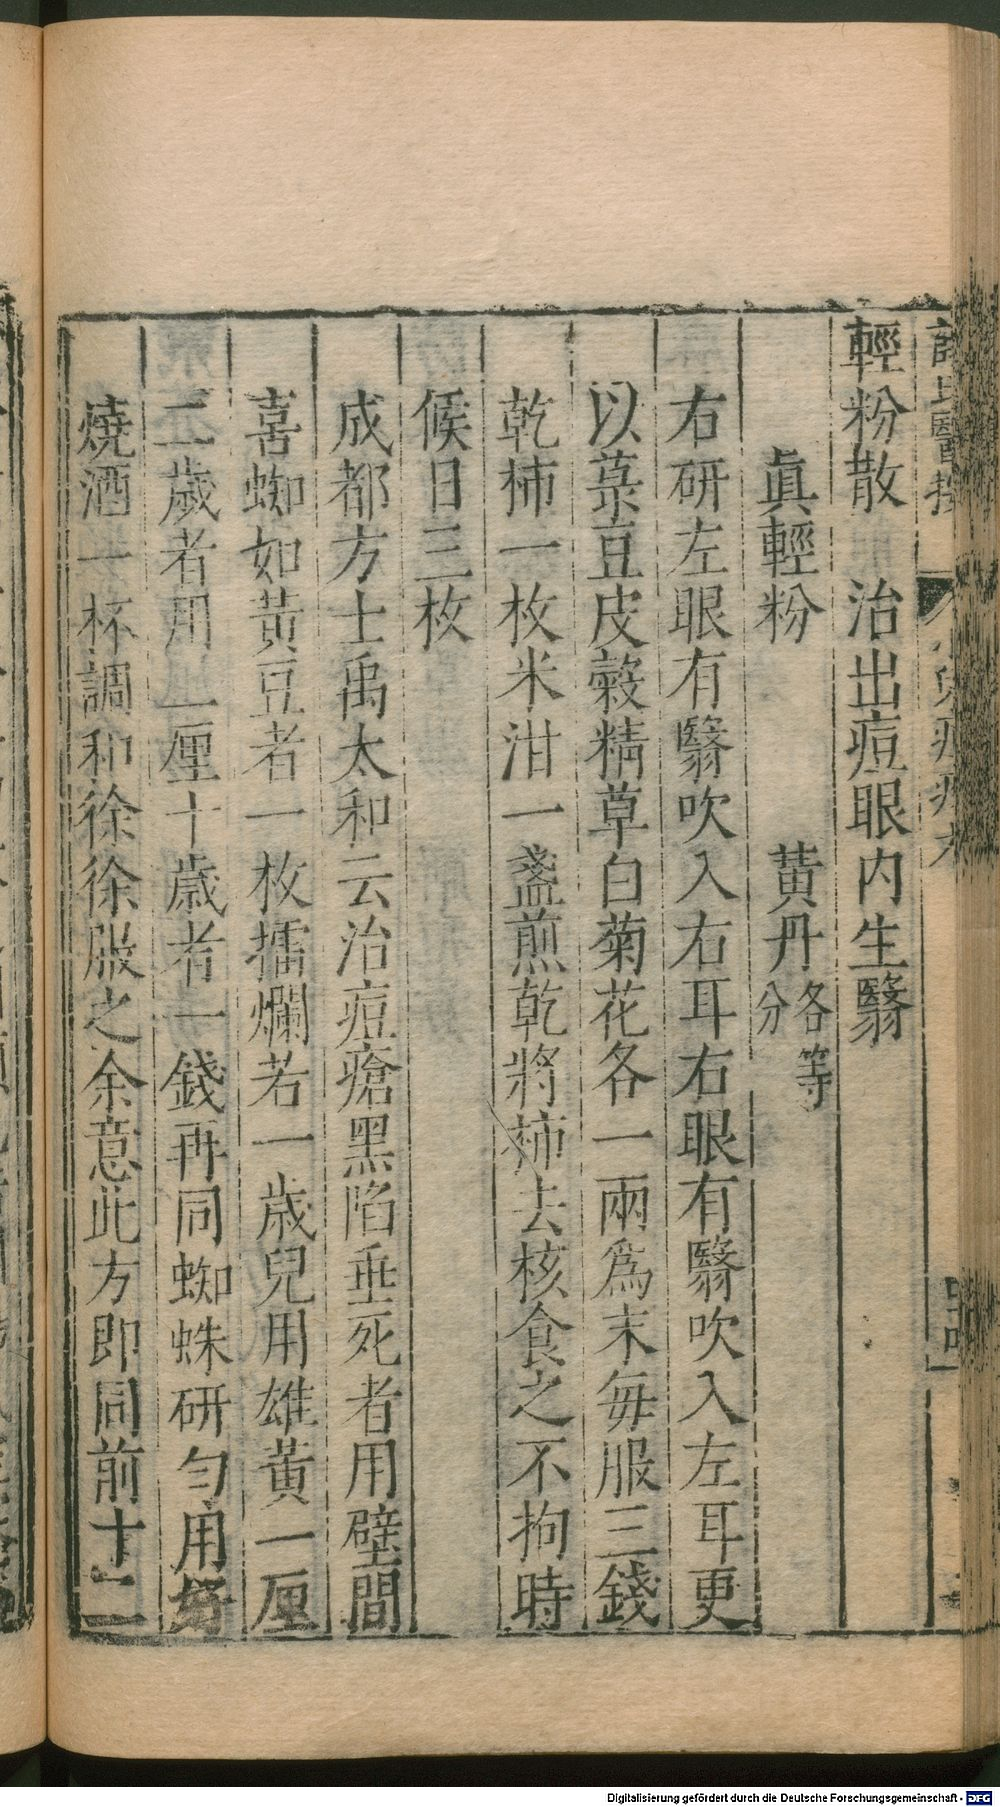 輕粉散　治出痘眼内生翳
眞輕粉　黃丹各等分
右研左眼有翳吹入右耳右眼有翳吹入左耳更
以菉豆皮穀精草白菊花各一兩爲末每服三錢
乾柿一枚米泔一盞煎乾將柿去核食之不拘時
候日三枚
成都方士禹太和云治痘瘡黑陷垂死者用壁間
喜蜘如黃豆者一枚擂爛若一歲兒用雄黃一厘
二歲者用二厘十歲者一錢再同蜘蛛研勻用好
燒酒一杯調和徐徐服之余意此方即同前十二
Digitalisierung gefördert durch die Deutsche Forschungsgemeinschaft - DFG